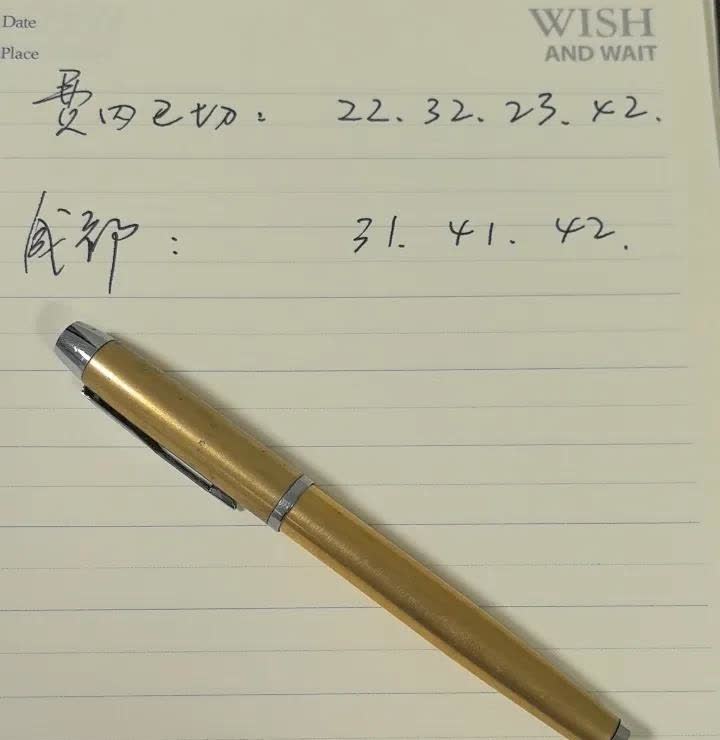 Date
Place
WISH
AND WAIT
费内巴切： 22. 32. 23. 42.
成都： 31. 41. 42.